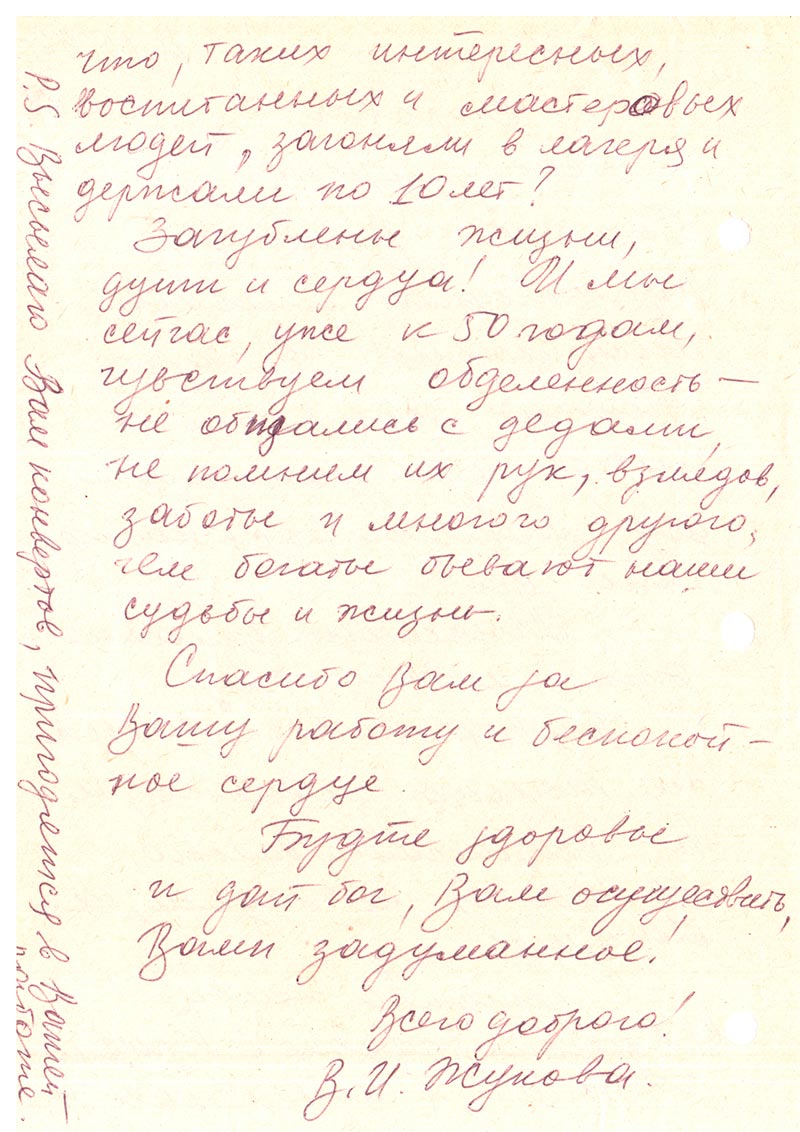 что, таких интересных,
воспитанных и мастеровых
людей, загоняли в лагеря и
держали по 10 лет?
Загублены жизни,
души и сердца! И мы
сейчас, уже к 50 годам,
чувствуем обделенность —
не общались с дедами,
не помним их рук, взглядов,
заботы и многого другого,
чем богаты бывают наши
судьбы и жизнь.
Спасибо Вам за
Вашу работу и беспокой-
ное сердце.
Будте здоровы
и дай бог, Вам осуществить,
Вами задуманное!
Всего доброго!
В. И. Жукова.
P.S. Высылаю Вам конвертов, пригодятся в Вашей
работе.